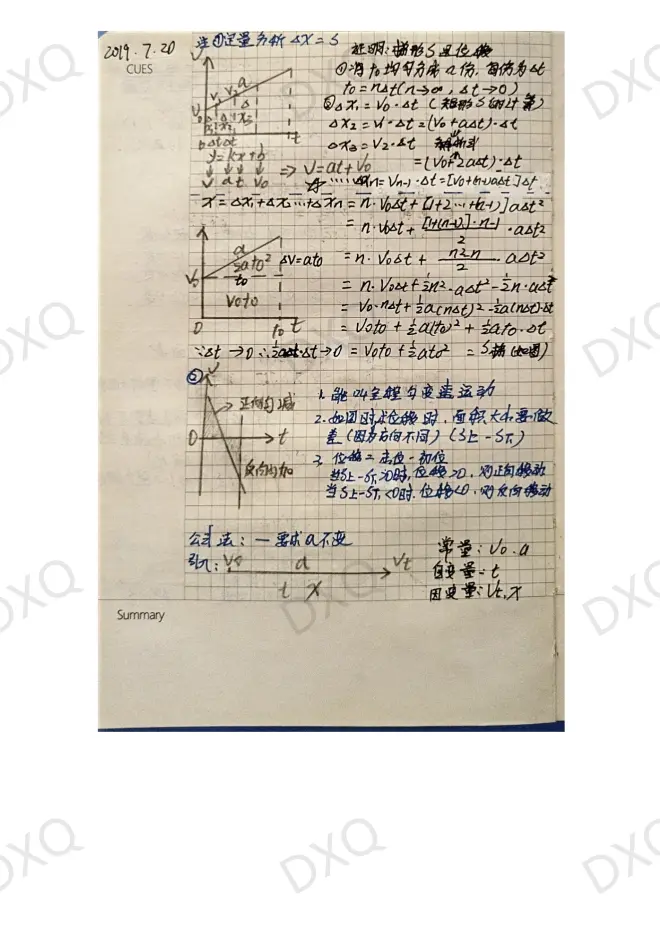 2019.7.20
CUES
注①定量分析 ΔX=S
证明:梯形S是位移
①将t₀均匀分成n份,每份为Δt
t₀=nΔt(n→∞, Δt→0)
②Δx₁=V₀·Δt (矩形S的计算)
Δx₂=V₁·Δt=(V₀+aΔt)·Δt
Δx₃=V₂·Δt
=(V₀+2aΔt)·Δt
y=kx+b
V at V₀
⇒V=at+V₀
Δxn=Vn-1·Δt=[V₀+(n-1)aΔt]Δt
X=Δx₁+Δx₂…+Δxn=n·V₀Δt+[1+2…+(n-1)]aΔt²
=n·V₀Δt+[1+(n-1)]·n-1/2·aΔt²
V
a
½at₀²
ΔV=at₀
V₀
t₀
V₀t₀
0 t₀ t
=n·V₀Δt+n²-n/2·aΔt²
=n·V₀Δt+½n²·aΔt²-½n·aΔt²
=V₀·nΔt+½a(nΔt)²-½a(nΔt)·Δt
=V₀t₀+½a(t₀)²+½at₀·Δt
∵Δt→0∴½at·Δt→0=V₀t₀+½at₀²=S梯(如图)
②
V
正向匀减
0 t
反向匀加
1. 能叫全程匀变速运动
2. 如图时求位移时,面积大小要做
差(因为方向不同)(S上-S下)
3. 位移=末位-初位
当S上-S下>0时,位移>0,则正向移动
当S上-S下<0时,位移<0,则反向移动
公式法:一要求a不变
引入:V₀ a Vt
t X
常量:V₀.a
自变量:t
因变量:Vt,X
Summary
DXQ